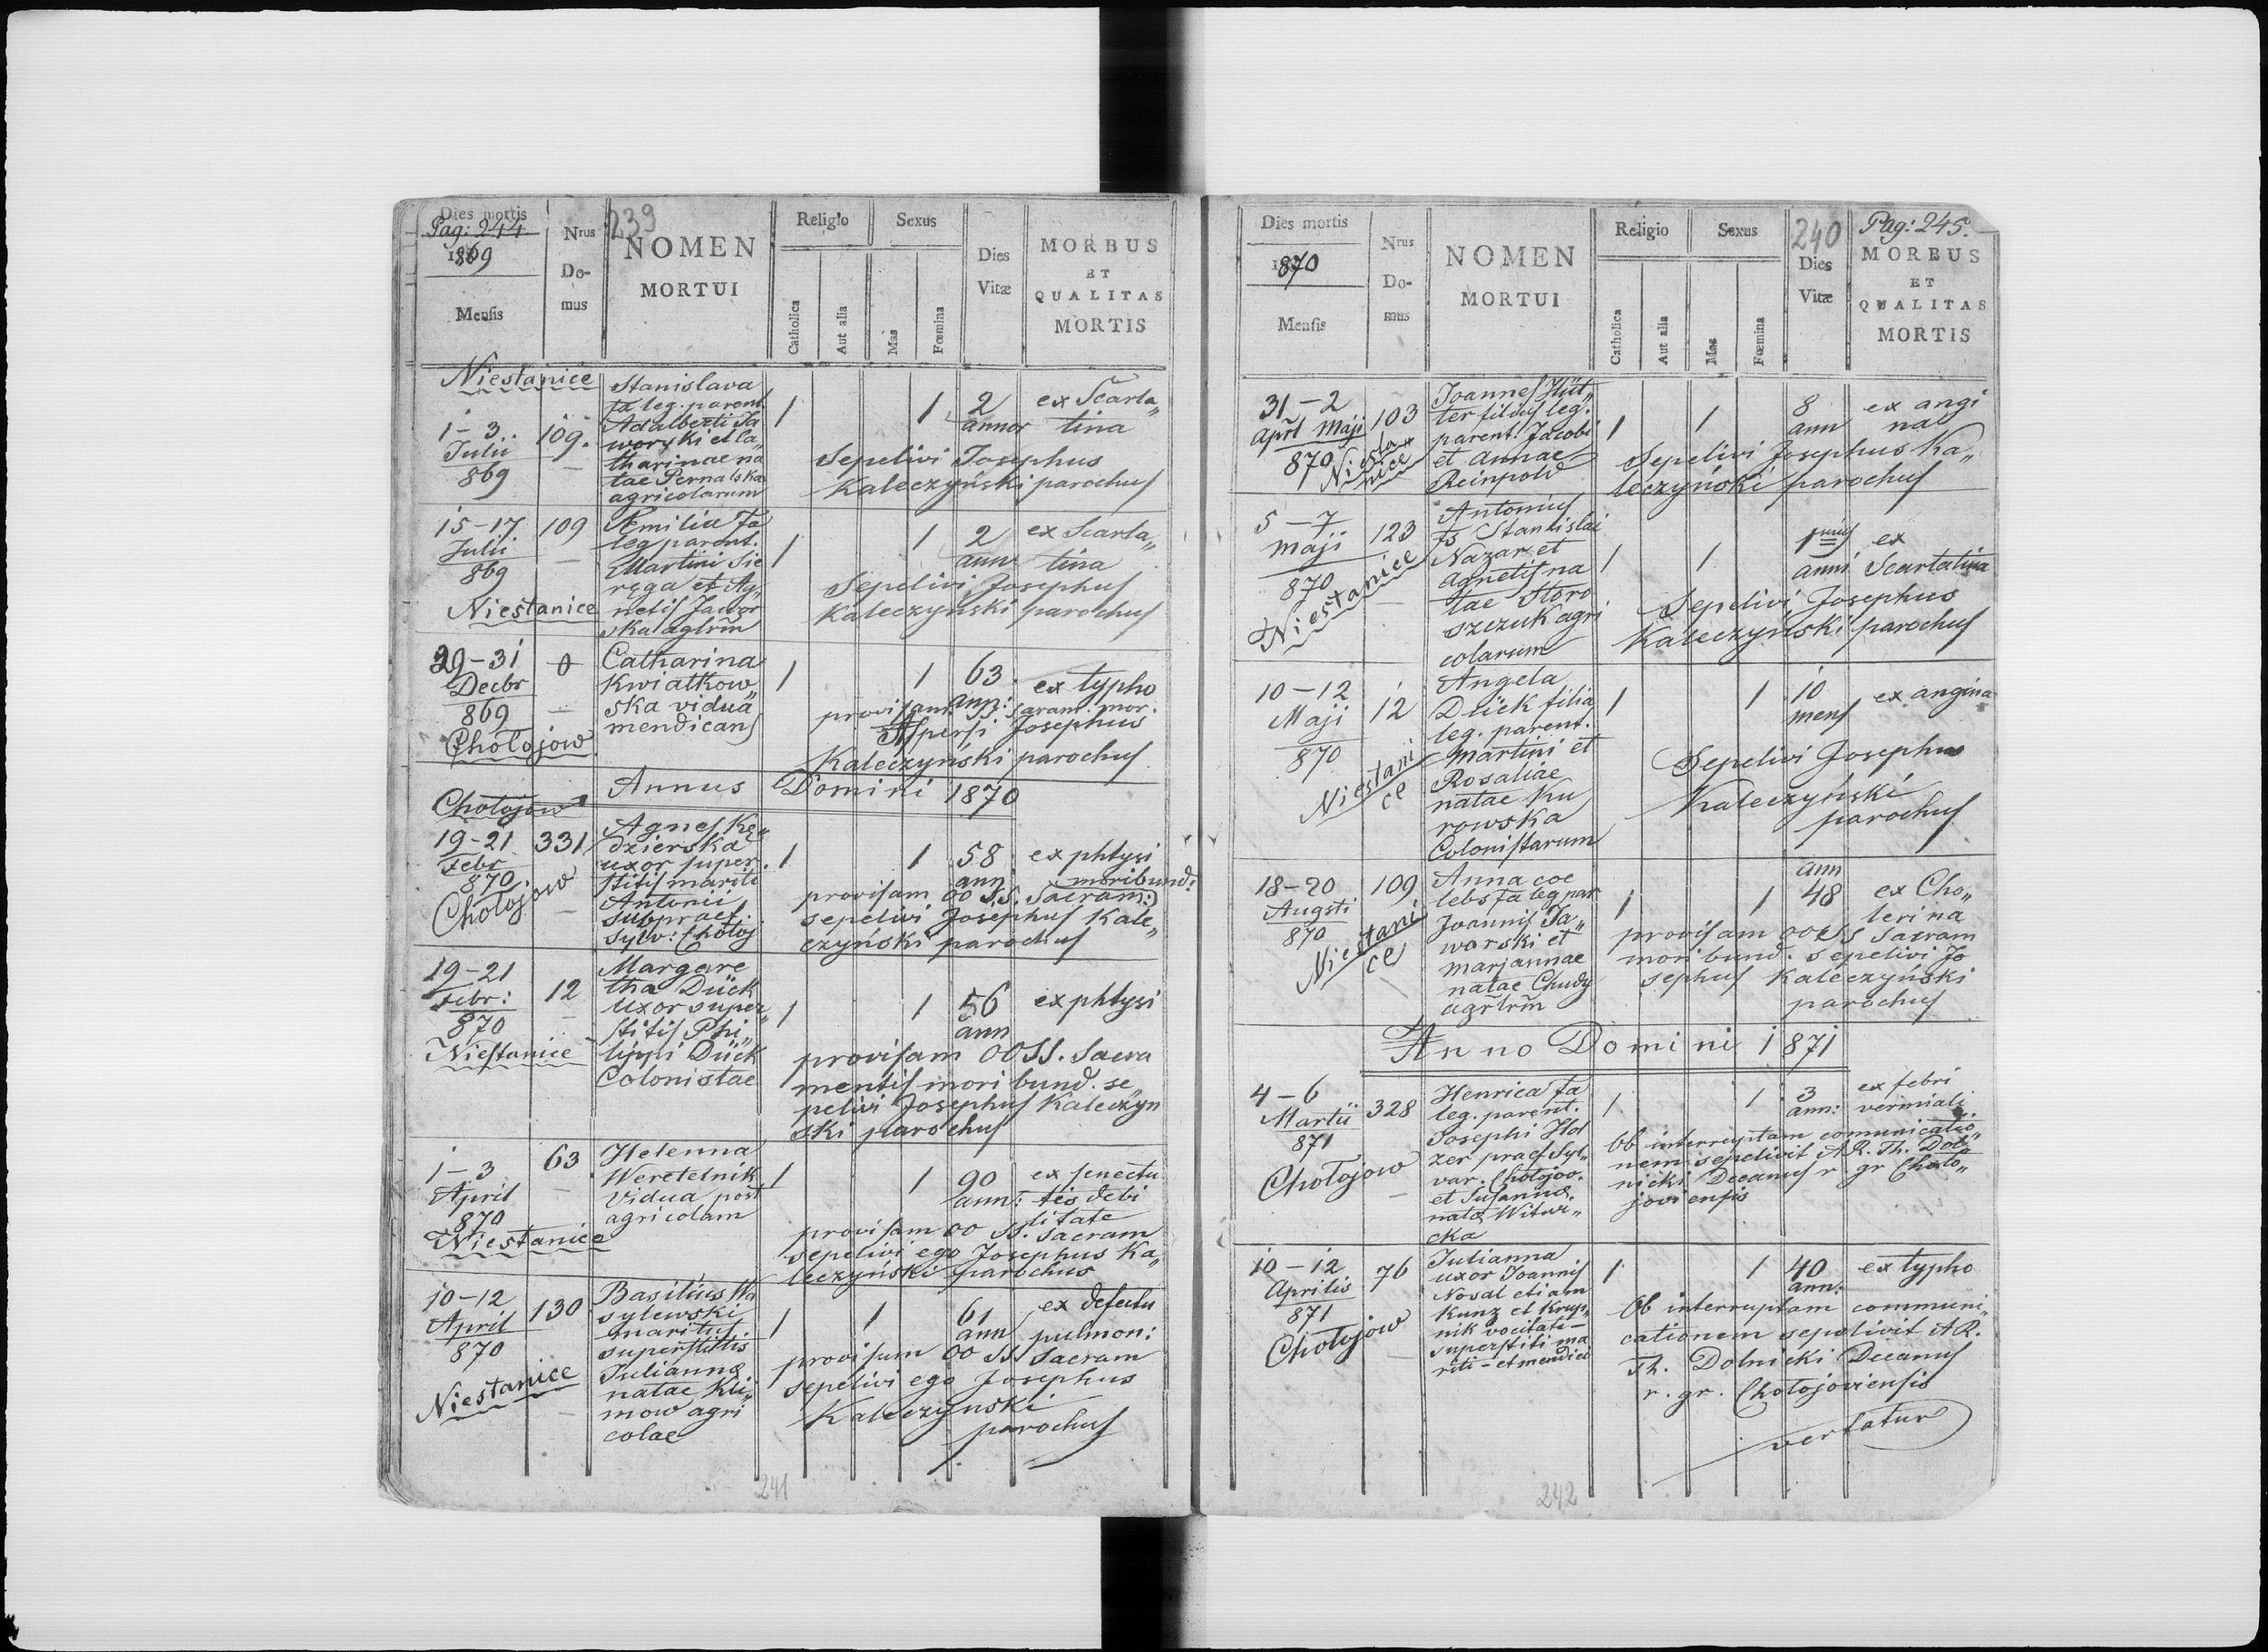 Dies mortis
Pag: 244
1869
Mensis
Nrus
Do-
mus
239
NOMEN
MORTUI
Religio
Catholica
Aut alia
Sexus
Mas
Fœmina
Dies
Vitæ
MORBUS
ET
QUALITAS
MORTIS
Niestanice
1-3
Julii
869
109.
Stanislava
fa leg. parent
Adalberti Ja
worski et Ca„
tharinae na
tae Pernalska
agricolarum
1
1
2
annor
ex Scarla„
tina
Sepelivi Josephus
Kaleczyński parochus
15-17
Julii
869
Niestanice
109
Æmilia fa
leg parent.
Martini Sie
ręga et Ag„
netis Jawor
ska agrlrm
1
1
2
ann
ex Scarla„
tina
Sepelivi Josephus
Kaleczyński parochus
29-31
Decbr
869
Chołojow
0
Catharina
Kwiatkow„
ska vidua
mendicans
1
1
63
ann:
ex typho
provisam SS saram. mor.
Aspersi Josephus
Kaleczyński parochus
Annus Domini 1870
Chołojow
19-21
Febr
870.
Chołojow
331
Agnes Kę„
dzierska
uxor super.
stitis mariti
Antonii
subpraef.
sylv: Chołoj
1
1
58
ann
ex phtysi
moribund:
provisam OO S.S. Sacram:
sepelivi Josephus Kale„
czyński parochus
19-21
Febr:
870
Niestanice
12
Margare
tha Dück
uxor super„
stitis Phi„
lippi Dück
Colonistae
1
1
56
ann
ex phtysi
provisam OO SS. Sacra
mentis moribund. se„
pelivi Josephus Kaleczyn
ski parochus
1-3
April
870
Niestanice
63
Helenna
Weretelnik
vidua post
agricolam
1
1
90
ann:
ex senectu
tis debi
litate
provisam OO SS. Sacram
sepelivi ego Josephus Ka„
leczyński parochus
10-12
April
870
Niestanice
130
Basilius Wa
sylewski
maritus
superstitis
Juliannæ
natae Kli„
mow agri
colae
1
1
61
ann
ex defectu
pulmon:
provisum OO SS Sacram
sepelivi ego Josephus
Kaleczynski
parochus
241
Dies mortis
1870
Mensis
Nrus
Do-
mus
NOMEN
MORTUI
Religio
Catholica
Aut alia
Sexus
Mas
Fœmina
240
Dies
Vitæ
Pag: 245.
MORBUS
ET
QUALITAS
MORTIS
31-2
Aprl Maji
870
Niesta
nice
103
Joannes Hüt„
ter filius leg.
parent. Jacobi
et Annae
Reinpold
1
1
8
ann
ex angi
na
Sepelivi Josephus Ka„
leczyński parochus
5-7
Maji
870
Niestanice
123
Antonius
fs Stanislai
Nazar et
Agnetis na
tae Storo
szczuk agri
colarum
1
1
1nius
anni
ex
Scarlatina
Sepelivi Josephus
Kaleczyński parochus
10-12
Maji
870
Niestani
ce
12
Angela
Dück filia
leg. parent.
Martini et
Rosaliae
natae Ku
rowska
Colonistarum
1
1
10
mens
ex angina
Sepelivi Josephus
Kaleczyński
parochus
18-20
Augsti
870
Niestani
ce
109
Anna coe
lebs fa leg par
Joannis Ja„
worski et
Marjannae
natae Chudy
agrlrm
1
1
ann
48
ex Cho„
lerina
provisam OO SS Sacram
moribund. sepelivi Jo
sephus Kaleczyński
parochus
Anno Domini 1871
4-6
Martii
871
Chołojow
328
Henrica fa
leg. parent.
Josephi Hol
zer praef Syl„
var. Chołojov.
et Susannæ
natæ Witwi„
cka
1
1
3
ann:
ex febri
vermiali
Ob interruptam communicatio„
nem sepelivit A.R. Th. Dol„
nicki Decanus r. gr Choło„
joviensis
10-12
Aprilis
871
Chołojow
76
Julianna
uxor Joannis
Nosal etiam
Kunz et Krup„
nik vocitati-
superstiti ma
riti - et mendici
1
1
40
ann:
ex typho
Ob interruptam communi„
cationem sepelivit A R.
Th. Dolnicki Decanus
r. gr. Chołojoviensis
vertatur
242